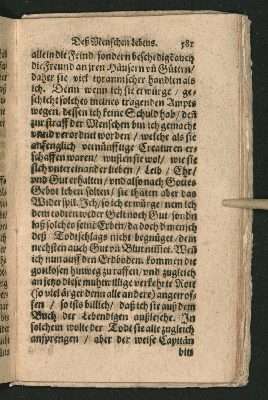 Deß Menschen lebens. 581
allein die Feind / sondern beschedigt auch
die Freund an jren Häusern uñ Gütern /
daher sie viel tyrannischer handlen als
ich. Denn wenn ich sie erwürge / ge-
schicht solches meines tragenden Ampts
wegen, dessen ich keine Schuld hab / deñ
zur straff der Menschen bin ich gemacht
unnd verordnet worden / welche als sie
anfenglich vernünfftige Creaturen er-
schaffen waren / wusten sie wol / wie sie
sich untereinander lieben / Leib / Ehr /
und Gut erhalten / und also nach Gottes
Gebot leben solten / sie thäten aber das
Widerspil. Ich / so ich erwürge / nem ich
dem todten weder Gelt noch Gut / sondn
laß solches seine Erben / da doch d mensch
deß Todtschlags nicht begnüget / dem
nechsten auch Gut uñ Blut nim̃t. Weñ
ich nun auff den Erdbodem kommen die
gottlosen hinweg zu raffen / und zugleich
an jetzo diese muhtwillige verkehrte Rott
(so viel ärger denn alle andere) angetrof-
fen / so ists billich / daß ich sie auß dem
Buch der Lebendigen außlesche. In
solchem wolte der Todt sie alle zugleich
ansprengen / aber der weise Capitän
bits